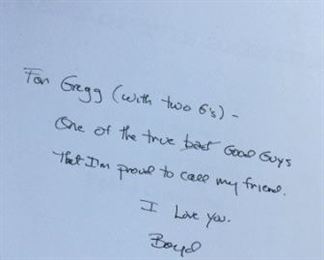 For Gregg (with two G's) -
One of the true best Good Guys
that I'm proud to call my friend.
I Love you.
Boyd